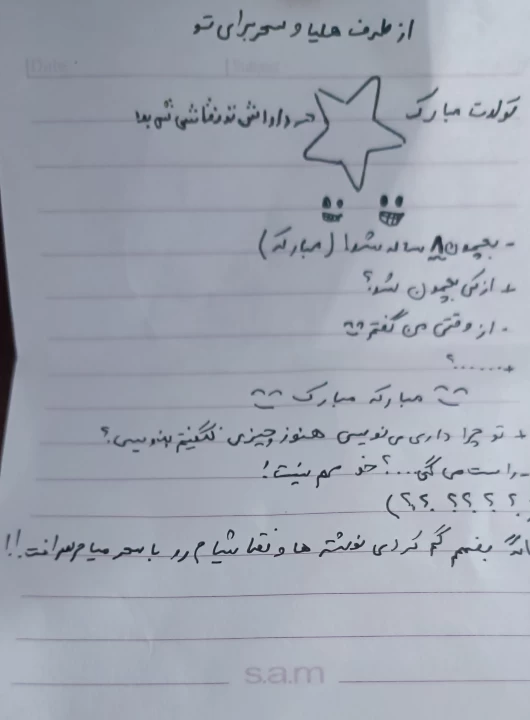 از طرف هلیا و سحر برای تو
تولدت مبارک
- بچمون ۸ ساله شد! (مبارکه)
+ ازکی بچمون شد؟
- از وقتی من گفتم
+ ......؟
مبارکه مبارک
+ تو چرا داری می‌نویسی هنوز چیزی نگفتیم بنویسی؟
- راست می‌گی...؟ خو مهم نیست!
؟ ؟ ؟ ؟؟ ؟؟)
بفهمم گم کردی نوشته ها و نقاشیام رو با سحر میام سراغت!!
s.a.m